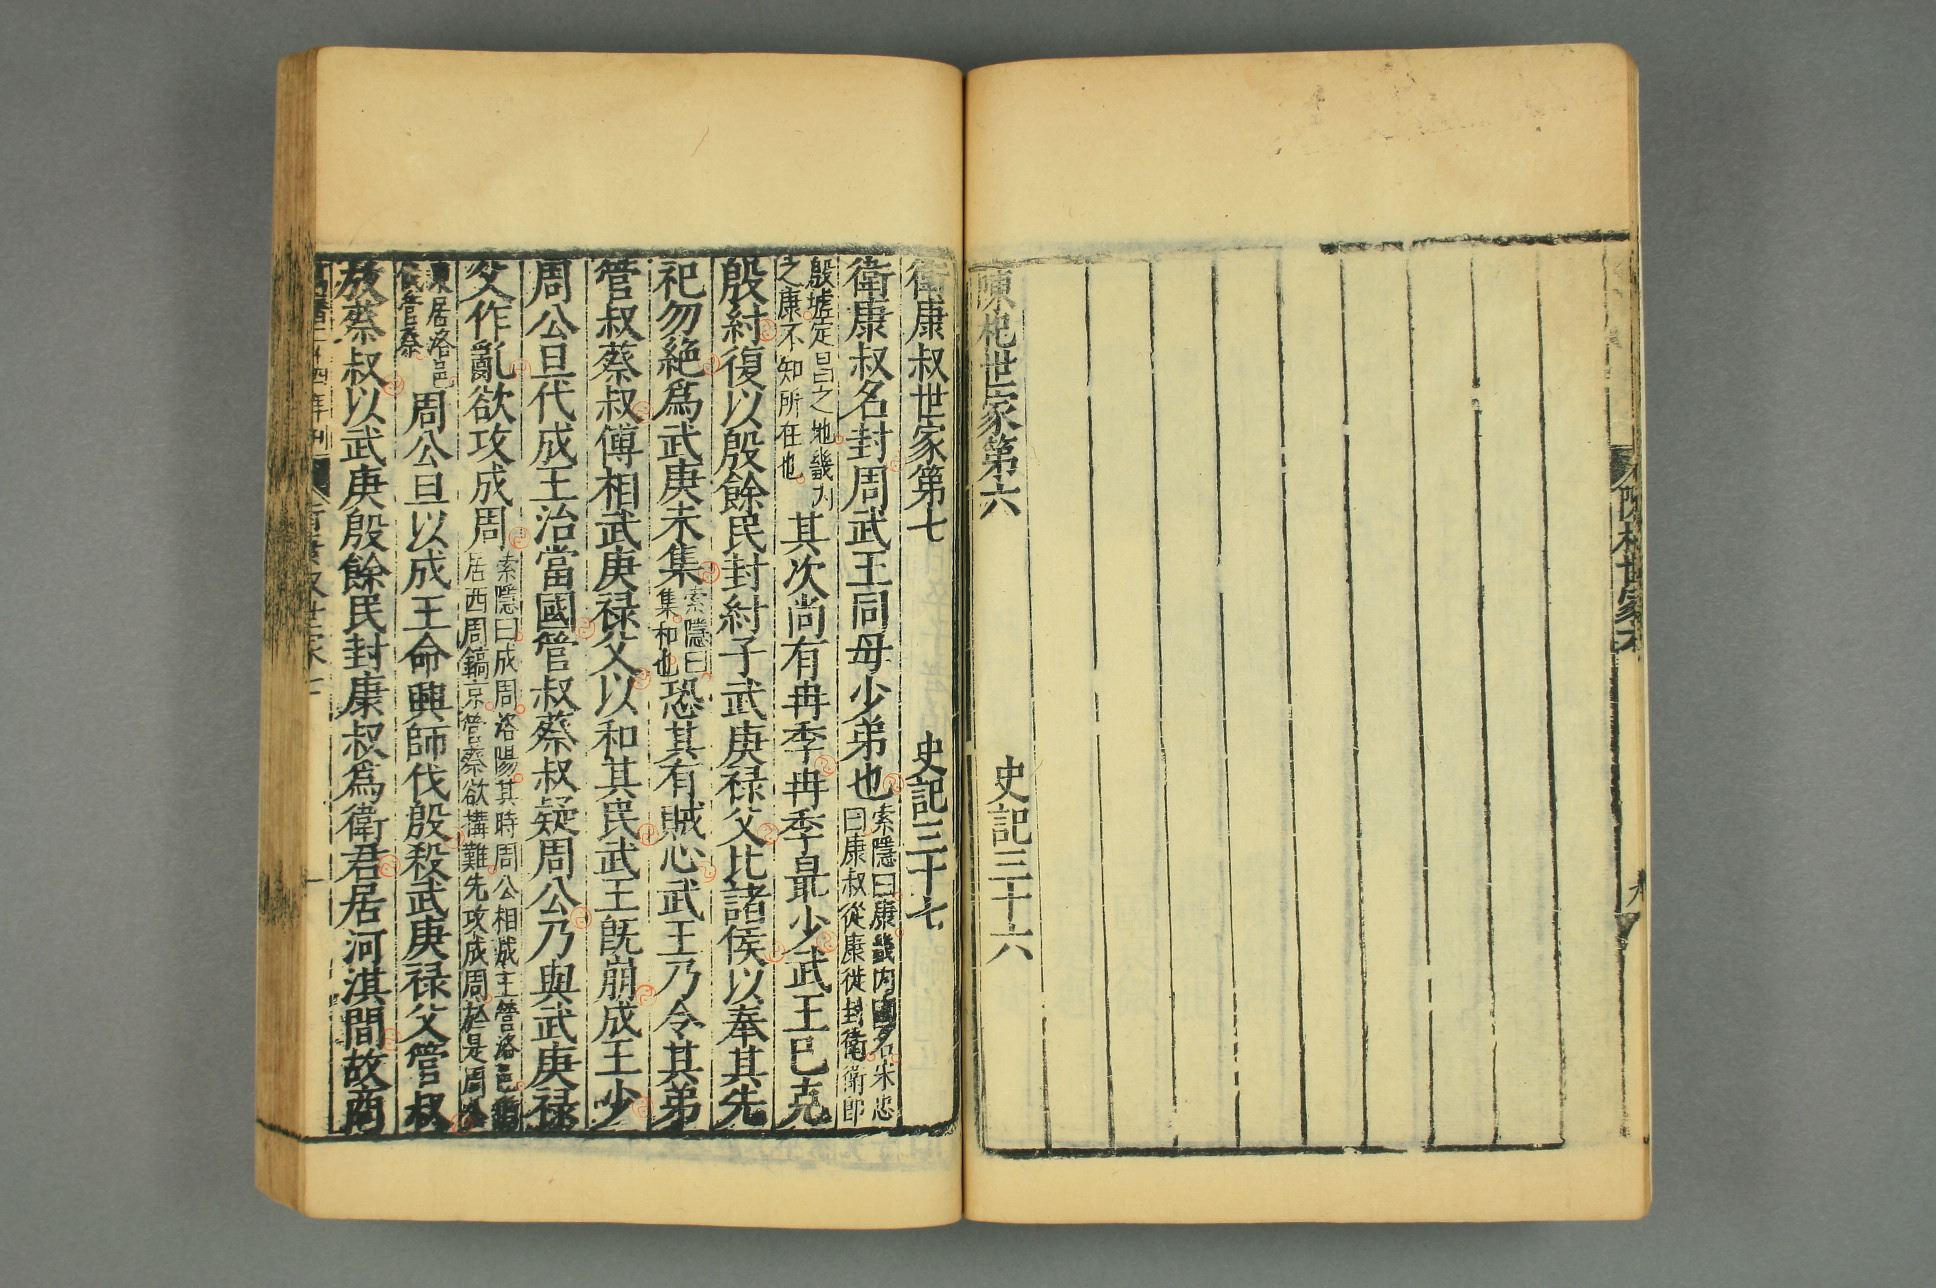 陳杞世家第六 史記三十六
衛康叔世家第七 史記三十七
衛康叔名封周武王同母少弟也索隱曰康畿内國名宋忠
曰康叔從康徙封衛衛即
殷墟定昌之地畿内
之康不知所在也其次尚有冉季冉季最少武王已克
殷紂復以殷餘民封紂子武庚禄父比諸侯以奉其先
祀勿絶爲武庚未集索隱曰
集和也恐其有賊心武王乃令其弟
管叔蔡叔傅相武庚禄父以和其民武王旣崩成王少
周公旦代成王治當國管叔蔡叔疑周公乃與武庚禄
父作亂欲攻成周索隱曰成周洛陽其時周公相成王營洛邑猶
居西周鎬京管蔡欲搆難先攻成周於是周公
東居洛邑
伐管蔡周公旦以成王命興師伐殷殺武庚禄父管叔
放蔡叔以武庚殷餘民封康叔爲衛君居河淇間故商